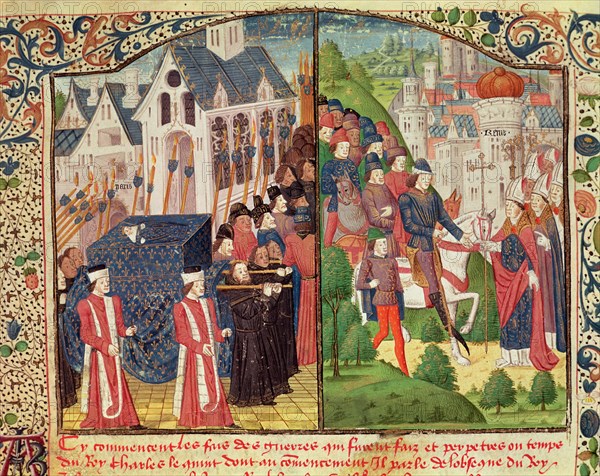 Cy commencent les fais des guerres qui furent faiz et perpetres ou temps
du Roy Charles le quint dont au cōmencement Il parle de lobseque du Roy